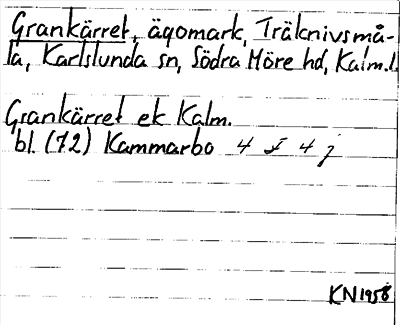 Grankärret, ägomark, Träknivsmå-
la, Karlslunda sn, Södra Möre hd, Kalm.l.
Grankärret ek Kalm.
bl. (72) Kammarbo 4 I 4 j
KN1958